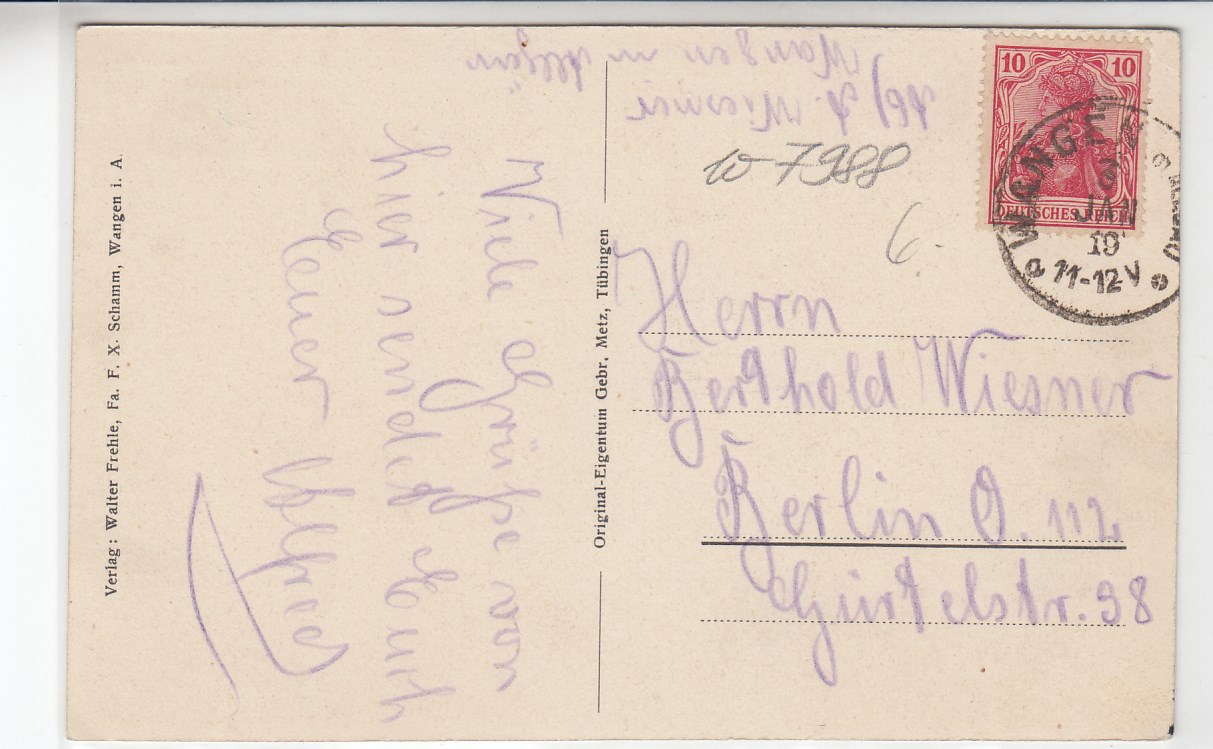 Abs. A. Wiesner
Wangen im Allgäu
10 10
DEUTSCHES REICH
WANGEN
JAN
19
11-12 V
w-7988
6.-
Viele Grüße von
hier sendet Euch
Euer Alfred
Herrn
Berthold Wiesner
Berlin O. 112
Gürtelstr. 38
Original-Eigentum Gebr. Metz, Tübingen
Verlag: Walter Frehle, Fa. F. X. Schamm, Wangen i. A.